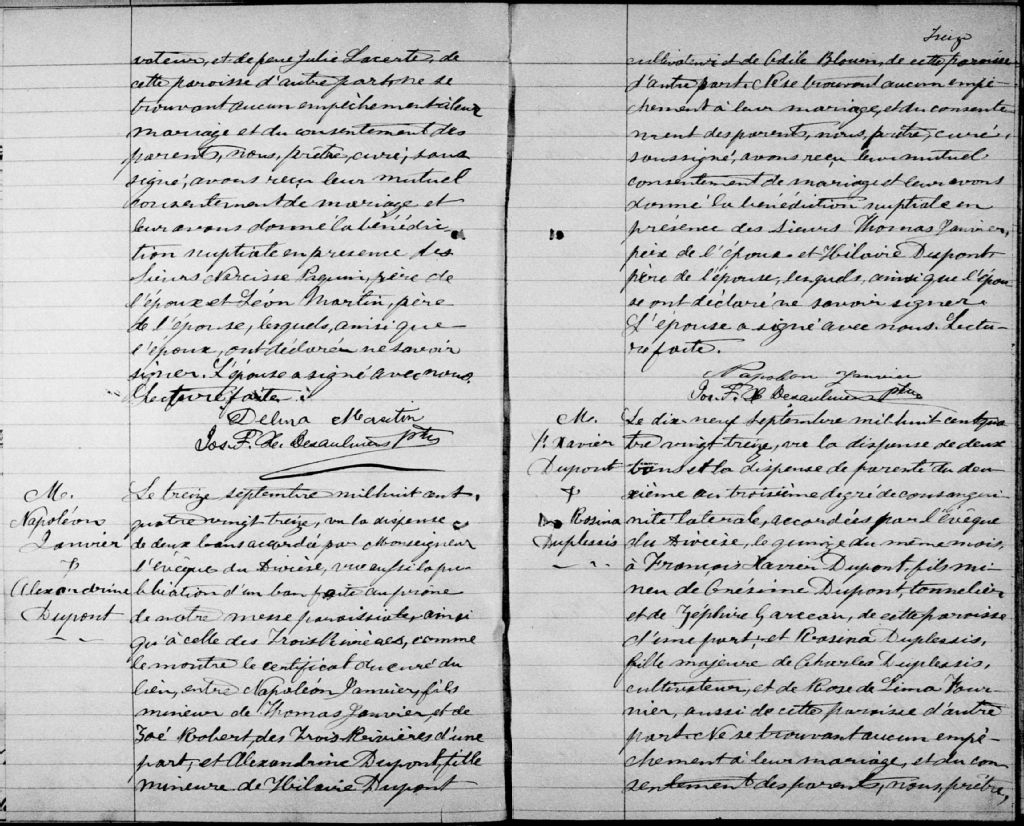 vateur, et de feue Julie Lacerte, de
cette paroisse d'autre part, ne se
trouvant aucun empêchement à leur
mariage et du consentement des
parents, nous, prêtre, curé, sous
signé, avons reçu leur mutuel
consentement de mariage et
leur avons donné la bénédic
tion nuptiale en présence des
Sieurs Narcisse Paquin, père de
l'époux et Léon Martin, père
de l'épouse, lesquels, ainsi que
l'époux, ont déclaré ne savoir
signer. L'épouse a signé avec nous.
Lecture faite.
Delma Martin
Jos. F. X. Desaulniers ptre
M.
Napoléon
Janvier
&
Alexandrine
Dupont
Le treize septembre mil huit cent
quatre vingt treize, vu la dispense
de deux bans accordée par Monseigneur
l'évêque du Diocèse, vu aussi la pu
blication d'un ban faite au prône
de notre messe paroissiale, ainsi
qu'à celle des Trois Rivières, comme
le montre le certificat du curé du
lieu, entre Napoléon Janvier, fils
mineur de Thomas Janvier, et de
Zoé Robert, des Trois Rivières d'une
part, et Alexandrine Dupont, fille
mineure de Hilaire Dupont
Treize
cultivateur et de Odile Blouin, de cette paroisse
d'autre part. Ne se trouvant aucun empê-
chement à leur mariage, et du consente
ment des parents, nous, prêtre, curé,
soussigné, avons reçu leur mutuel
consentement de mariage et leur avons
donné la bénédiction nuptiale en
présence des Sieurs Thomas Janvier,
père de l'époux et Hilaire Dupont
père de l'épouse, lesquels, ainsi que l'épou
se ont déclaré ne savoir signer.
L'épouse a signé avec nous. Lectu-
re faite.
Napoléon Janvier
Jos. F. X. Desaulniers ptre
M.
F. Xavier
Dupont
&
Rosina
Duplessis
Le dix neuf septembre mil huit cent qua
tre vingt treize, vu la dispense de deux
bans et la dispense de parenté du deu
xième au troisième degré de consangui
nité latérale, accordées par l'évêque
du Diocèse, le quinze du même mois,
à François Xavier Dupont, fils mi
neur de Onésime Dupont, tonnelier
et de Zéphire Garceau, de cette paroisse
d'une part, et Rosina Duplessis,
fille majeure de Charles Duplessis,
cultivateur, et de Rose de Lima Four-
nier, aussi de cette paroisse d'autre
part. Ne se trouvant aucun empê-
chement à leur mariage, et du con
sentement des parents, nous, prêtre,